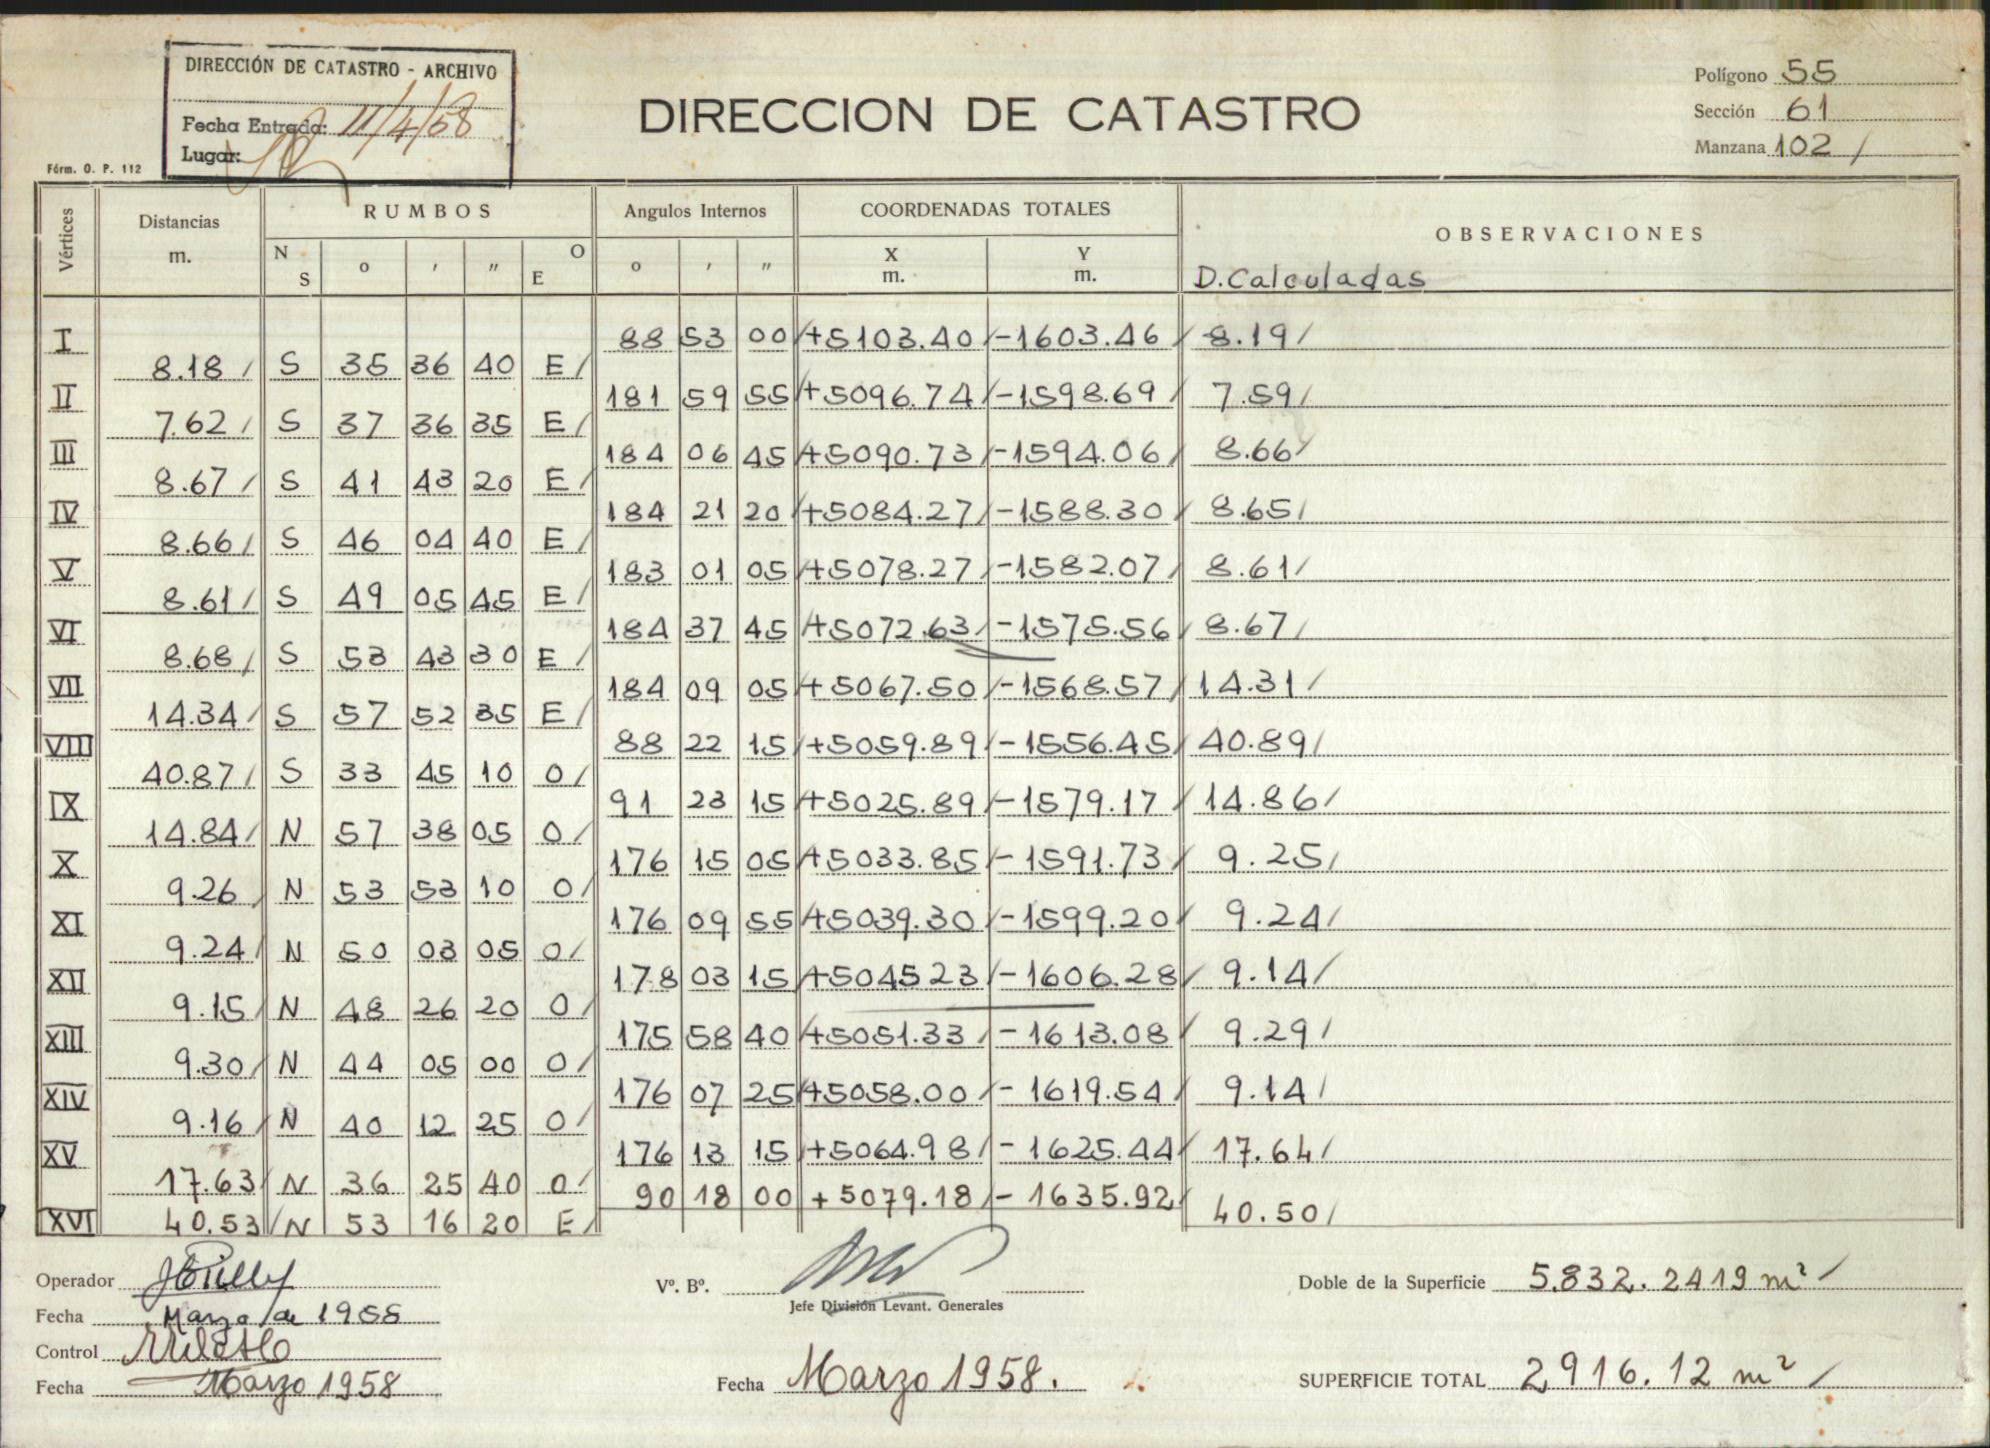 DIRECCIÓN DE CATASTRO - ARCHIVO
Fecha Entrada: 11/4/58
Lugar:
Fórm. O. P. 112
DIRECCION DE CATASTRO
Polígono 55
Sección 61
Manzana 102 /
Vértices Distancias m. RUMBOS Angulos Internos COORDENADAS TOTALES OBSERVACIONES
N S o ' " O E o ' " X m. Y m. D. Calculadas
I 88 53 00 / +5103.40 / -1603.46 / 8.19 /
8.18 / S 35 36 40 E /
II 181 59 55 / +5096.74 / -1598.69 / 7.59 /
7.62 / S 37 36 35 E /
III 184 06 45 / +5090.73 / -1594.06 / 8.66 /
8.67 / S 41 43 20 E /
IV 184 21 20 / +5084.27 / -1588.30 / 8.65 /
8.66 / S 46 04 40 E /
V 183 01 05 / +5078.27 / -1582.07 / 8.61 /
8.61 / S 49 05 45 E /
VI 184 37 45 / +5072.63 / -1575.56 / 8.67 /
8.68 / S 53 43 30 E /
VII 184 09 05 / +5067.50 / -1568.57 / 14.31 /
14.34 / S 57 52 35 E /
VIII 88 22 15 / +5059.89 / -1556.45 / 40.89 /
40.87 / S 33 45 10 O /
IX 91 23 15 / +5025.89 / -1579.17 / 14.86 /
14.84 / N 57 38 05 O /
X 176 15 05 / +5033.85 / -1591.73 / 9.25 /
9.26 / N 53 53 10 O /
XI 176 09 55 / +5039.30 / -1599.20 / 9.24 /
9.24 / N 50 03 05 O /
XII 178 03 15 / +5045 23 / -1606.28 / 9.14 /
9.15 / N 48 26 20 O /
XIII 175 58 40 / +5051.33 / -1613.08 / 9.29 /
9.30 / N 44 05 00 O /
XIV 176 07 25 / +5058.00 / -1619.54 / 9.14 /
9.16 / N 40 12 25 O /
XV 176 13 15 / +5064.98 / -1625.44 / 17.64 /
17.63 / N 36 25 40 O /
90 18 00 / +5079.18 / -1635.92 / 40.50 /
XVI 40.53 / N 53 16 20 E /
Operador
Fecha Marzo de 1958
Control
Fecha Marzo 1958
Vº. Bº.
Jefe División Levant. Generales
Fecha Marzo 1958.
Doble de la Superficie 5.832.2419 m² /
SUPERFICIE TOTAL 2916.12 m² /